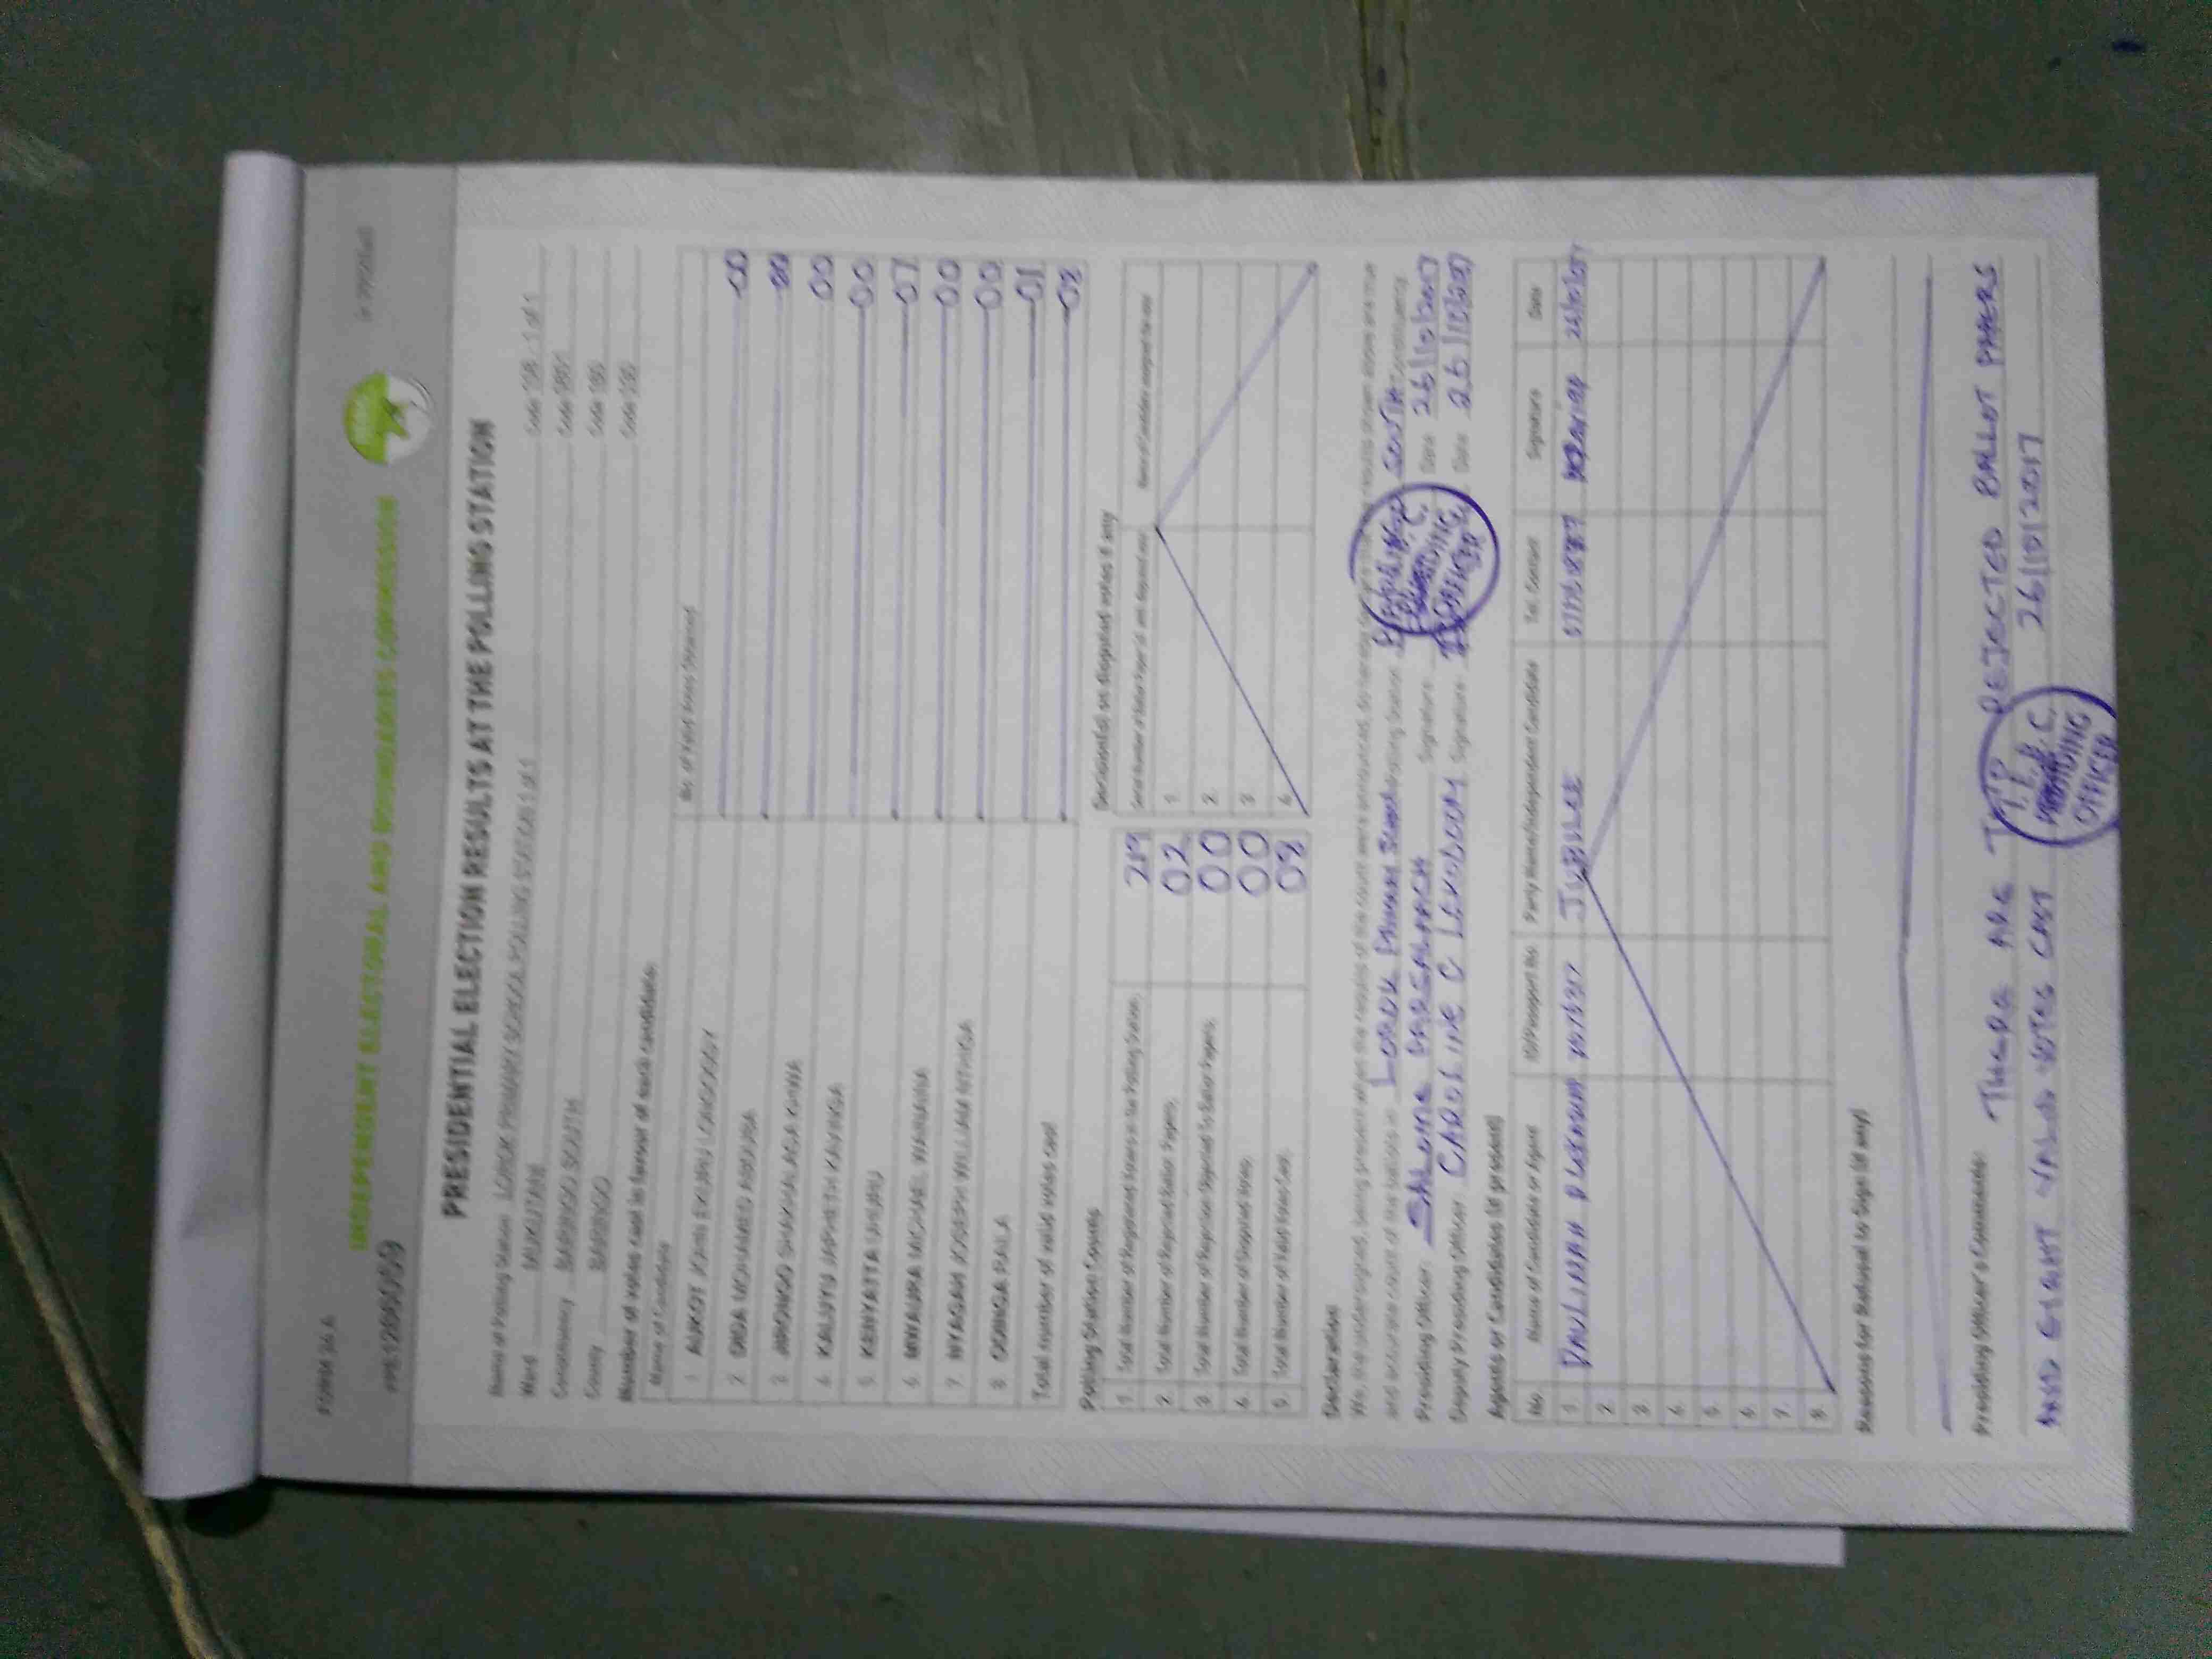 FORM 34 A
INDEPENDENT ELECTORAL AND BOUNDARIES COMMISSION
PRESIDENTIAL ELECTION RESULTS AT THE POLLING STATION
Name of Polling Station LOROK PRIMARY SCHOOL POLLING STATION 1 of 1 Code 158 - 1 of 1
Ward MUKUTANI
Constituency BARINGO SOUTH
County BARINGO
Number of votes cast in favour of each candidate
Name of Candidate No. of Valid Votes Obtained
1 AUKOT JOHN EKURU LONGOGGY 00
2 DIDA MOHAMED ABDUBA 00
3 JIRONGO SHAKHALAGA KHWA 00
4 KALUYU JAPHETH KAVINGA 00
5 KENYATTA UHURU 07
6 MWAURA MICHAEL WAINAINA 00
7 NYAGAH JOSEPH WILLIAM NTHIGA 00
8 ODINGA RAILA 01
Total number of valid votes cast 08
Polling Station Counts
1 Total Number of Registered Voters in the Polling Station 219
2 Total Number of Rejected Ballot Papers 02
3 Total Number of Rejection Objected To Ballot Papers 00
4 Total Number of Disputed Votes 00
5 Total Number of Valid Votes Cast 08
Decision(s) on disputed votes if any
Serial Number of Ballot Paper (s) Name of Candidate
1.
2.
3.
4.
Declaration
We, the undersigned, being present when the results of the count were announced, do hereby results shown above are true
and accurate count of the ballots in LOROK Primary School Polling Station BARINGO SOUTH Constituency
Presiding Officer SALOME Signature Date 26/10/2017
Deputy Presiding Officer CAROLINE C Signature Date 26/10/2017
Agents or Candidates (if present)
No. Name of Candidate or Agent ID/Passport No Party Name/Independent Candidate Tel. Contact Signature Date
1. JUBILEE
2.
3.
4.
5.
6.
7.
8.
Reasons for Refusal to Sign (if any)
Presiding Officer's Comments: THERE ARE TWO REJECTED BALLOT PAPERS
AND EIGHT VALID VOTES CAST 26/10/2017
I.E.B.C.
PRESIDING
OFFICER